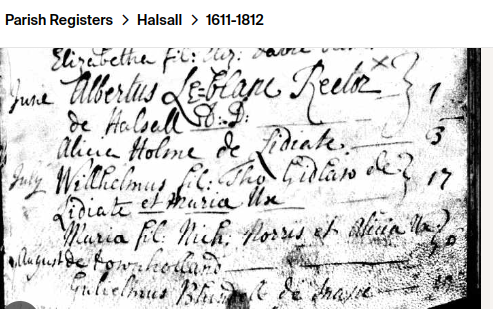 Parish Registers > Halsall > 1611-1812
Elizabetha fil:
June Albertus Le=blanc Rector × 1
de Halsell D:D:
Alicia Holme de Lidiate 3
July Willhelmus fil: Tho: Gidlaw de 17
Lidiate et Maria Ux
Maria fil: Nich: Norris et Alicia Ux
August de Downholland
Gulielmus Blundell de